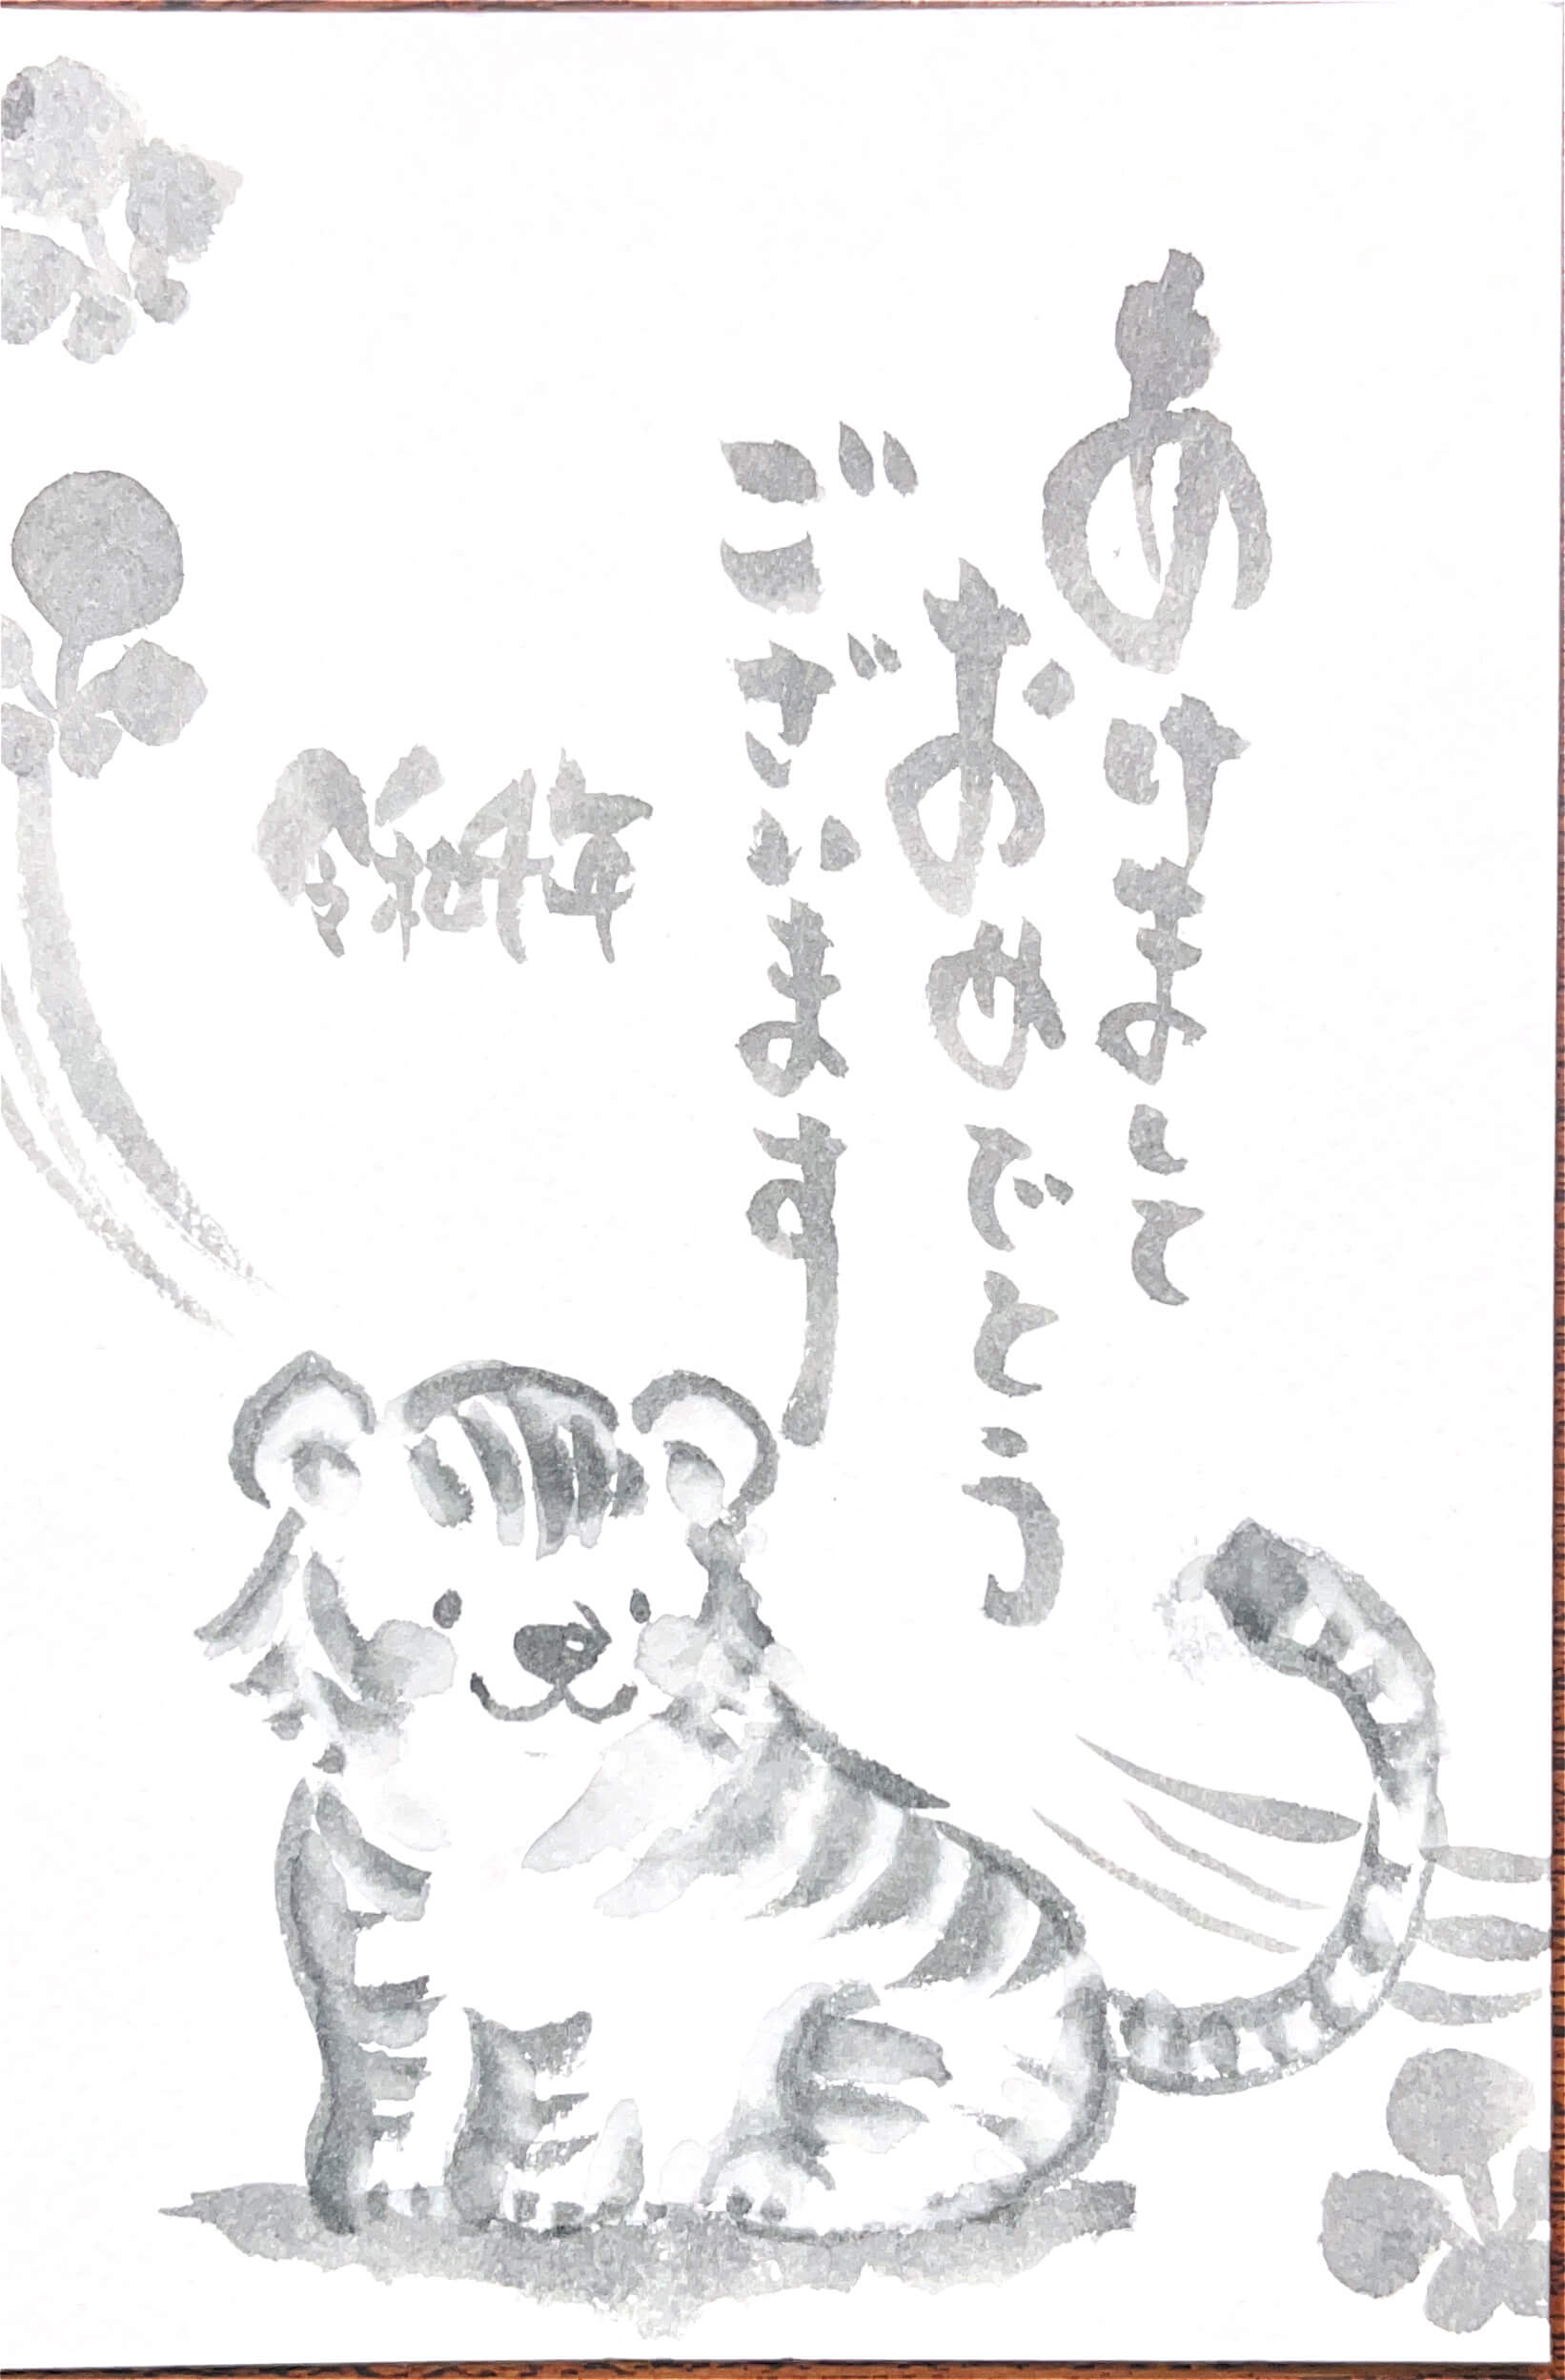 あけまして
おめでとう
ございます
令和4年